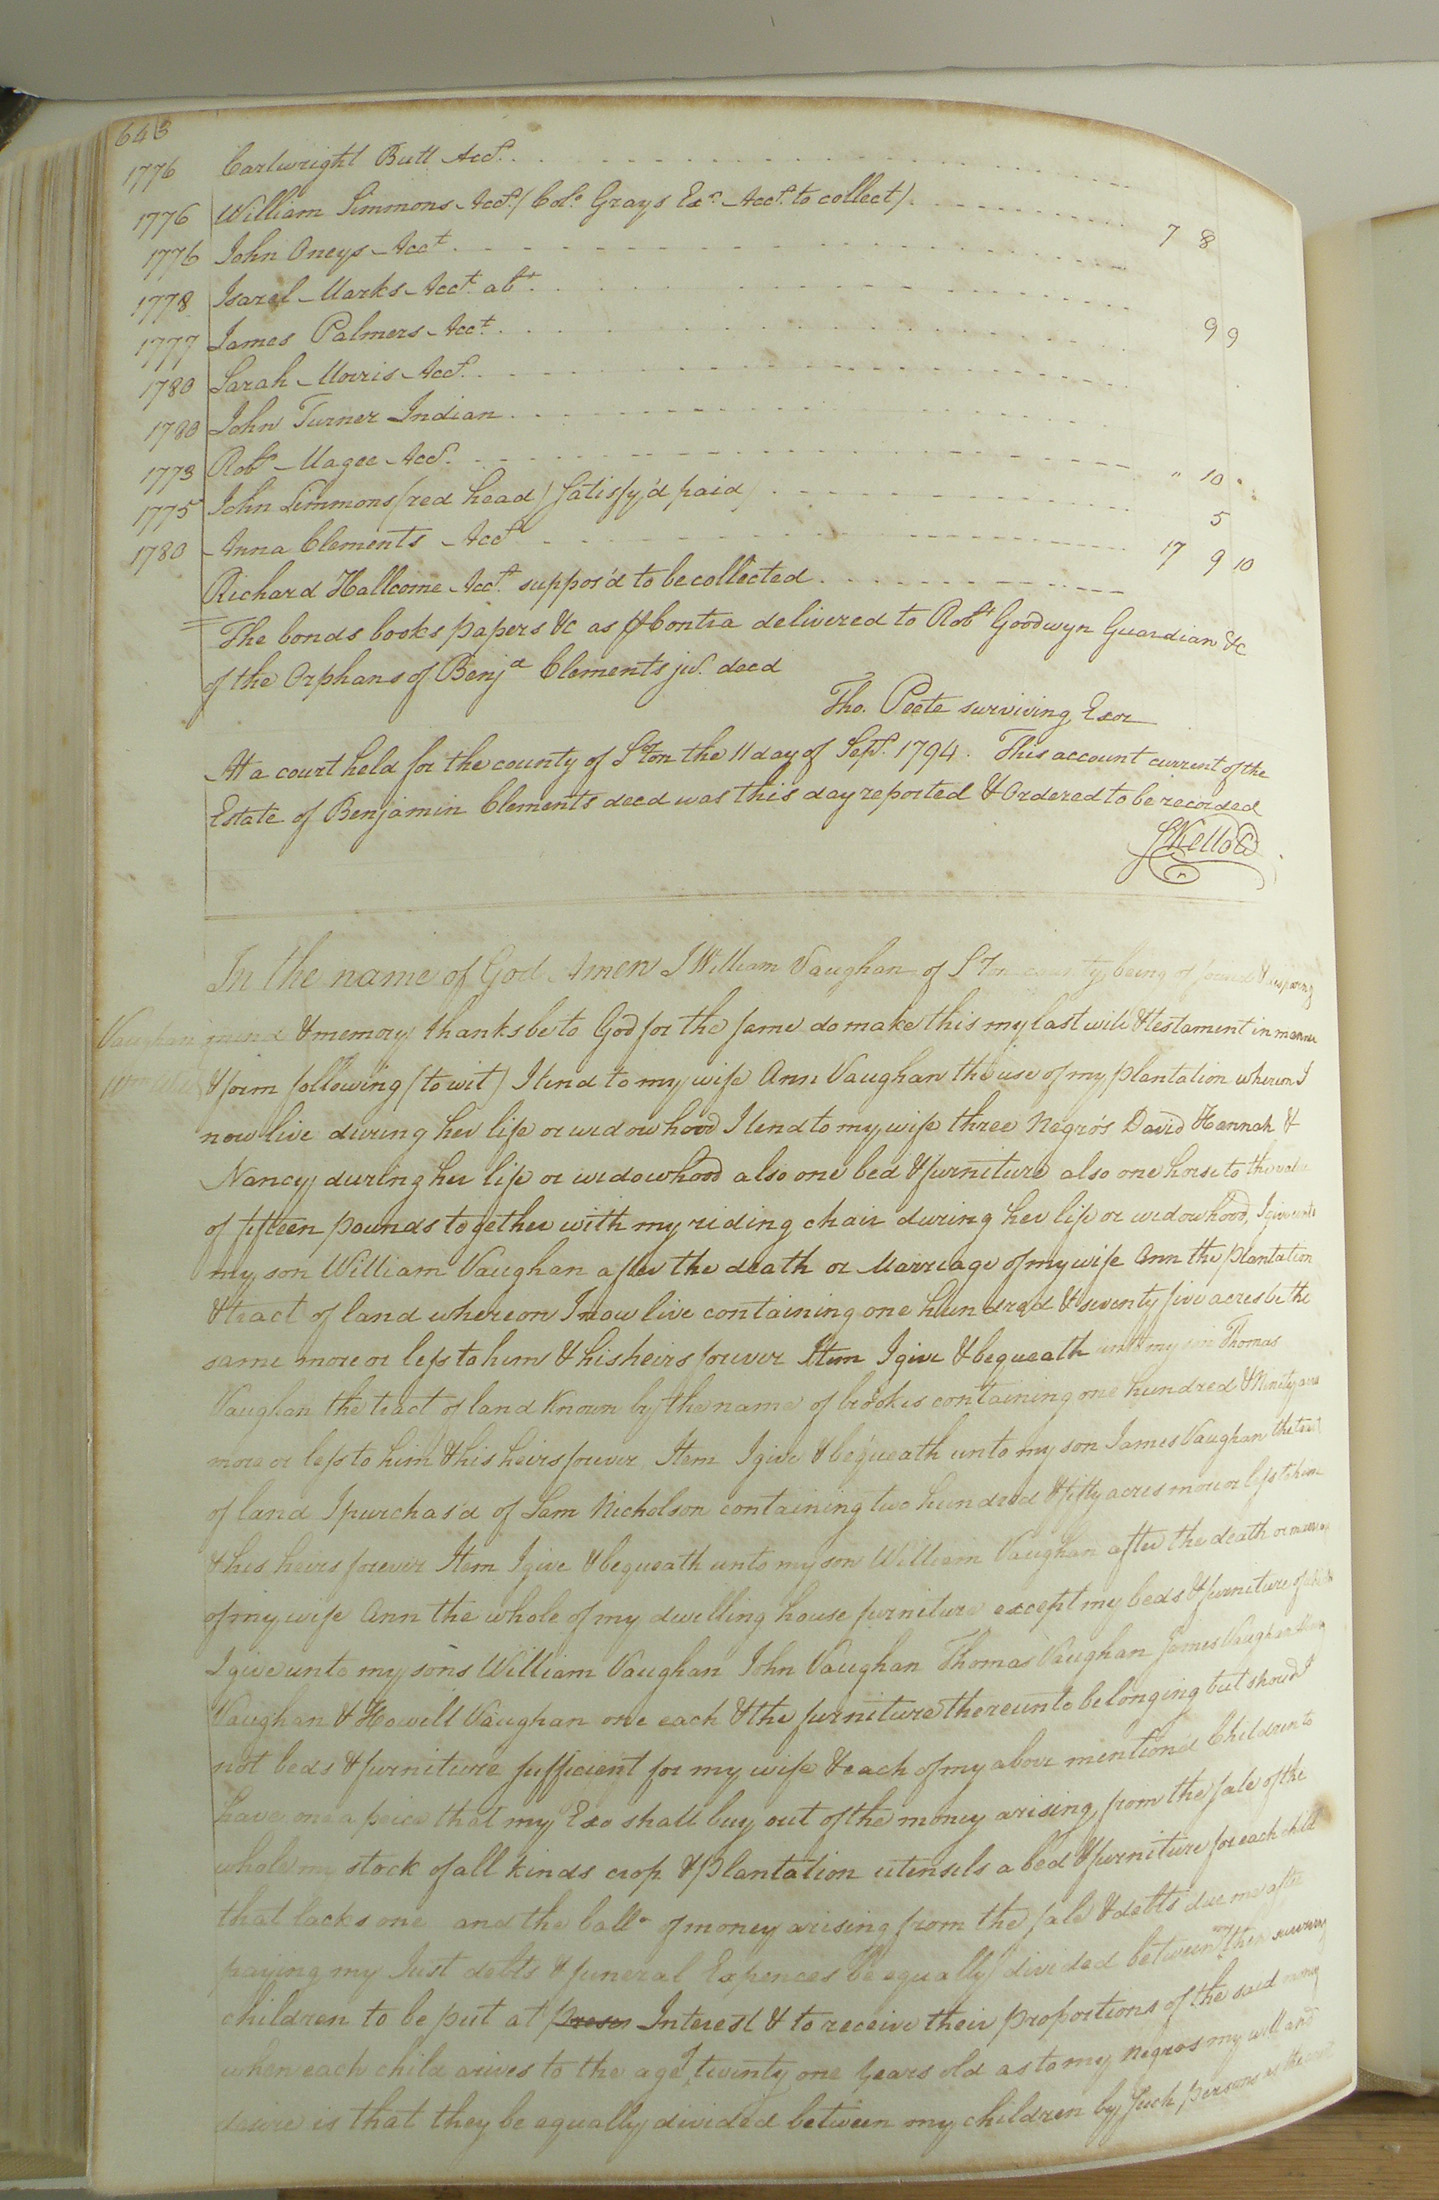 643
1776 Cartwright Butt Acct.
1776 William Simmons Acct. (Colo. Grays Exr. Acct. to collect) 7 8
1776 John Oneys Acct
1778 Isarel Marks Acct. abt.
1777 James Palmers Acct. 9 9
1780 Sarah Morris Acct.
1780 John Turner Indian
1773 Robt. Magee Acct. " 10 "
1775 John Simmons (red head) Satisfy'd paid 5
1780 Anna Clements Acct 17 9 10
Richard Hallcome Acct. suppos'd to be collected
The bonds books papers &c as ⅌ Contra delivered to Robt Goodwyn Guardian &c
of the Orphans of Benja Clements jur. decd
Tho. Peete surviving Exor
At a court held for the county of S'ton the 11 day of Sept. 1794. This account current of the
Estate of Benjamin Clements decd was this day reported & Ordered to be recorded
S Kello CC
In the name of God Amen I William Vaughan of S'ton county being of sound & disposing
Vaughan mind & memory thanks be to God for the same do make this my last will & testament in manner
Wm Will & form following (to wit) I lend to my wife Ann Vaughan the use of my plantation whereon I
now live during her life or widowhood I lend to my wife three Negro's David Hannah &
Nancy during her life or widowhood also one bed & furniture also one horse to the value
of fifteen pounds together with my riding chair during her life or widowhood, I give unto
my son William Vaughan after the death or Marriage of my wife Ann the plantation
& tract of land whereon I now live containing one hundred & seventy five acres be the
same more or less to him & his heirs forever Item I give & bequeath unto my son Thomas
Vaughan the tract of land Known by the name of brookes containing one hundred & Ninity acres
more or less to him & his heirs forever Item I give & bequeath unto my son James Vaughan the tract
of land I purchas'd of Sam Nicholson containing two hundred & fifty acres more or less to him
& his heirs forever Item I give & bequeath unto my son William Vaughan after the death or marriage
of my wife Ann the whole of my dwelling house furniture except my beds & furniture of which
I give unto my sons William Vaughan John Vaughan Thomas Vaughan James Vaughan
Vaughan & Howell Vaughan one each & the furniture thereunto belonging but should I
not beds & furniture sufficient for my wife & each of my above mention'd Children to
have one a peice that my Exo shall buy out of the money arising from the sale of the
whole my stock of all kinds crop & plantation utensils a bed & furniture for each child
that lacks one and the balla of money arising from the sale & debts due me after
paying my Just debts & funeral Expences be equally divided between my then surviving
children to be put at Interest & to receive their proportions of the said money
when each child arives to the age of twenty one years old as to my Negros my will and
desire is that they be equally divided between my children by Such persons as the